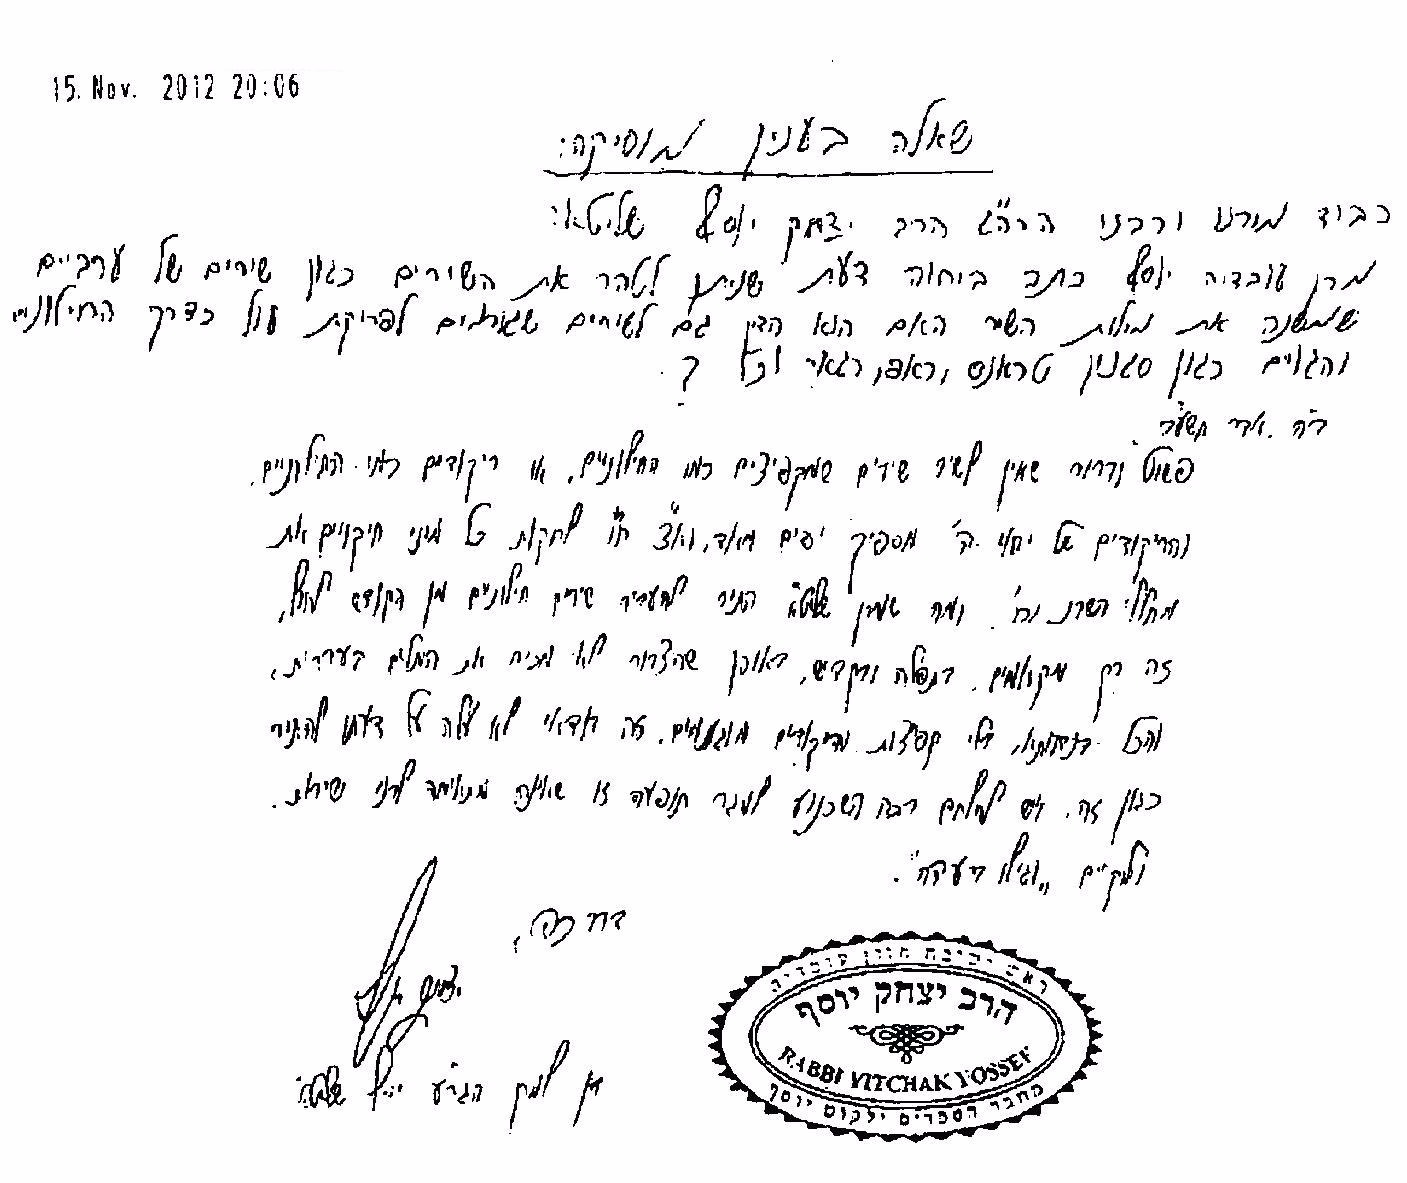 15. Nov. 2012 20:06
שאלה בענין מוסיקה:
כבוד מורנו ורבנו הרה"ג הרב יצחק יוסף שליטא:
מרן עובדיה יוסף כתב ביחוה דעת שניתן לטהר את השירים כגון שירים של ערביים
שמשנה את מילות השיר האם הוא הדין גם לשירים שגורמים לפריקת עול כדרך החילונים
והגויים כגון סגנון טראנס, ראפ, רגאיי וכל ?
ב"ה. אדר תשע"ב
פשוט וברור שאין לשיר שירים שמקפיצים כמו החילוניים, או ריקודים כמו החילוניים.
והריקודים של יראי ה' מספיק יפים מאוד, ואצ ח"ו לחקות כל מיני חיקויים את
מחללי השבת וכו'. ומה שמרן שליט"א התיר להעביר שירים חילוניים מן הקודש לחול,
זה רק מקאמים. בתפלה וקדיש, באופן שהצבור לא מכיר את המלים בערבית,
והכל בנעימות, בלי קפיצות וריקודים מוגזמים. זה בודאי לא עלה על דעתו להתיר
כגון זה. ויש להלחם בכח השכנוע למגר תופעה זו שאינה מתאימה לבני ישיבות.
ולקיים "וגילו ברעדה".
בברכה,
יצחק יוסף
בן למרן הגר"ע יוסף שליט"א
ראש ישיבת חזון עובדיה
הרב יצחק יוסף
RABBI YITCHAK YOSSEF
מחבר הספרים ילקוט יוסף